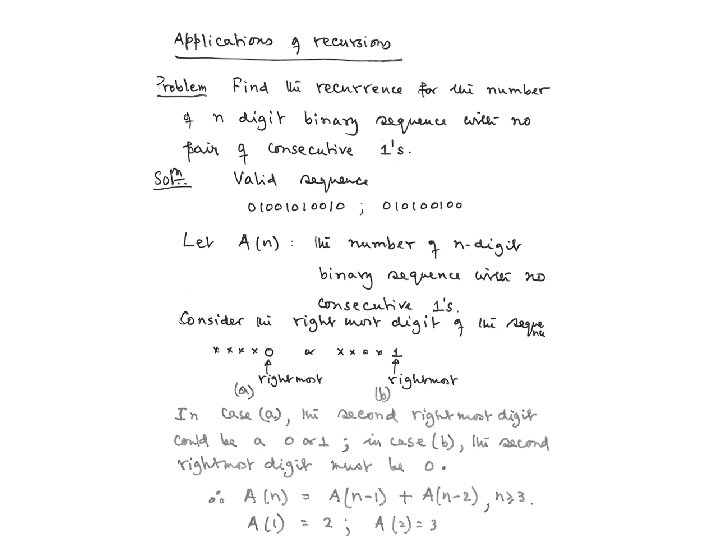 Applications of recursions
Problem Find the recurrence for the number
of n digit binary sequence with no
pair of consecutive 1's.
Soln. Valid sequence
01001010010 ; 010100100
Let A(n) : the number of n-digit
binary sequence with no
consecutive 1's.
Consider the right most digit of the sequence
x x x x 0 or x x x x 1
rightmost rightmost
(a) (b)
In case (a), the second rightmost digit
could be a 0 or 1 ; in case (b), the second
rightmost digit must be 0.
∴ A(n) = A(n-1) + A(n-2), n≥3.
A(1) = 2 ; A(2) = 3